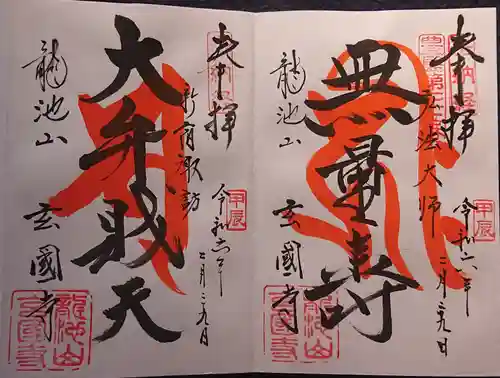 奉拝
弘法大師
令和六年
二月二十九日
無量寿
龍池山
玄國寺
甲辰
龍池山
玄國寺
奉拝
新宿諏訪
令和六年
二月二十九日
大弁財天
龍池山
玄國寺
甲辰
龍池山
玄國寺